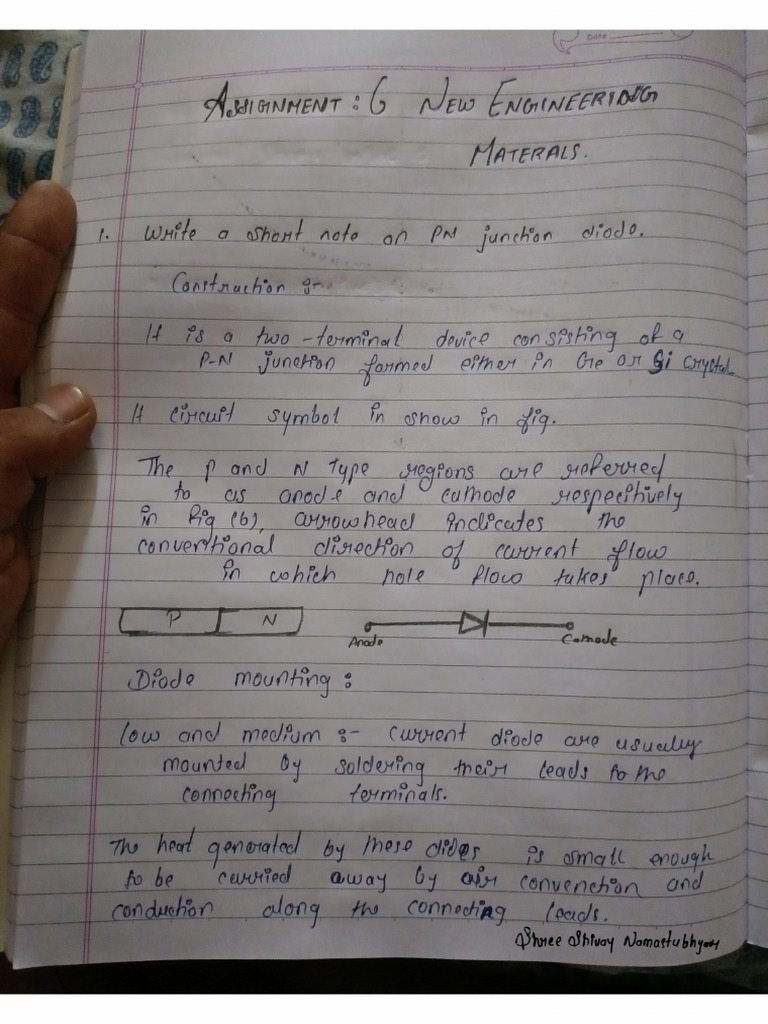 Date
ASSIGNMENT : 6 NEW ENGINEERING
MATERALS.
1. Write a short note on PN junction diode.
Construction :-
It is a two-terminal device consisting of a
P-N junction formed either in Ge or Si crystal.
It circuit symbol in show in fig.
The P and N Type regions are referred
to as anode and cathode respecitively
in fig (b), arrowhead indicates the
conventional direction of current flow
in which hole flow takes place.
P N
Anode Cathode
Diode mounting :
low and medium :- current diode are usually
mounted by soldering their leads to the
connecting terminals.
The heat generated by these dides is small enough
to be carried away by air convenction and
conduction along the connecting leads.
Shree Shivay Namastubhyam